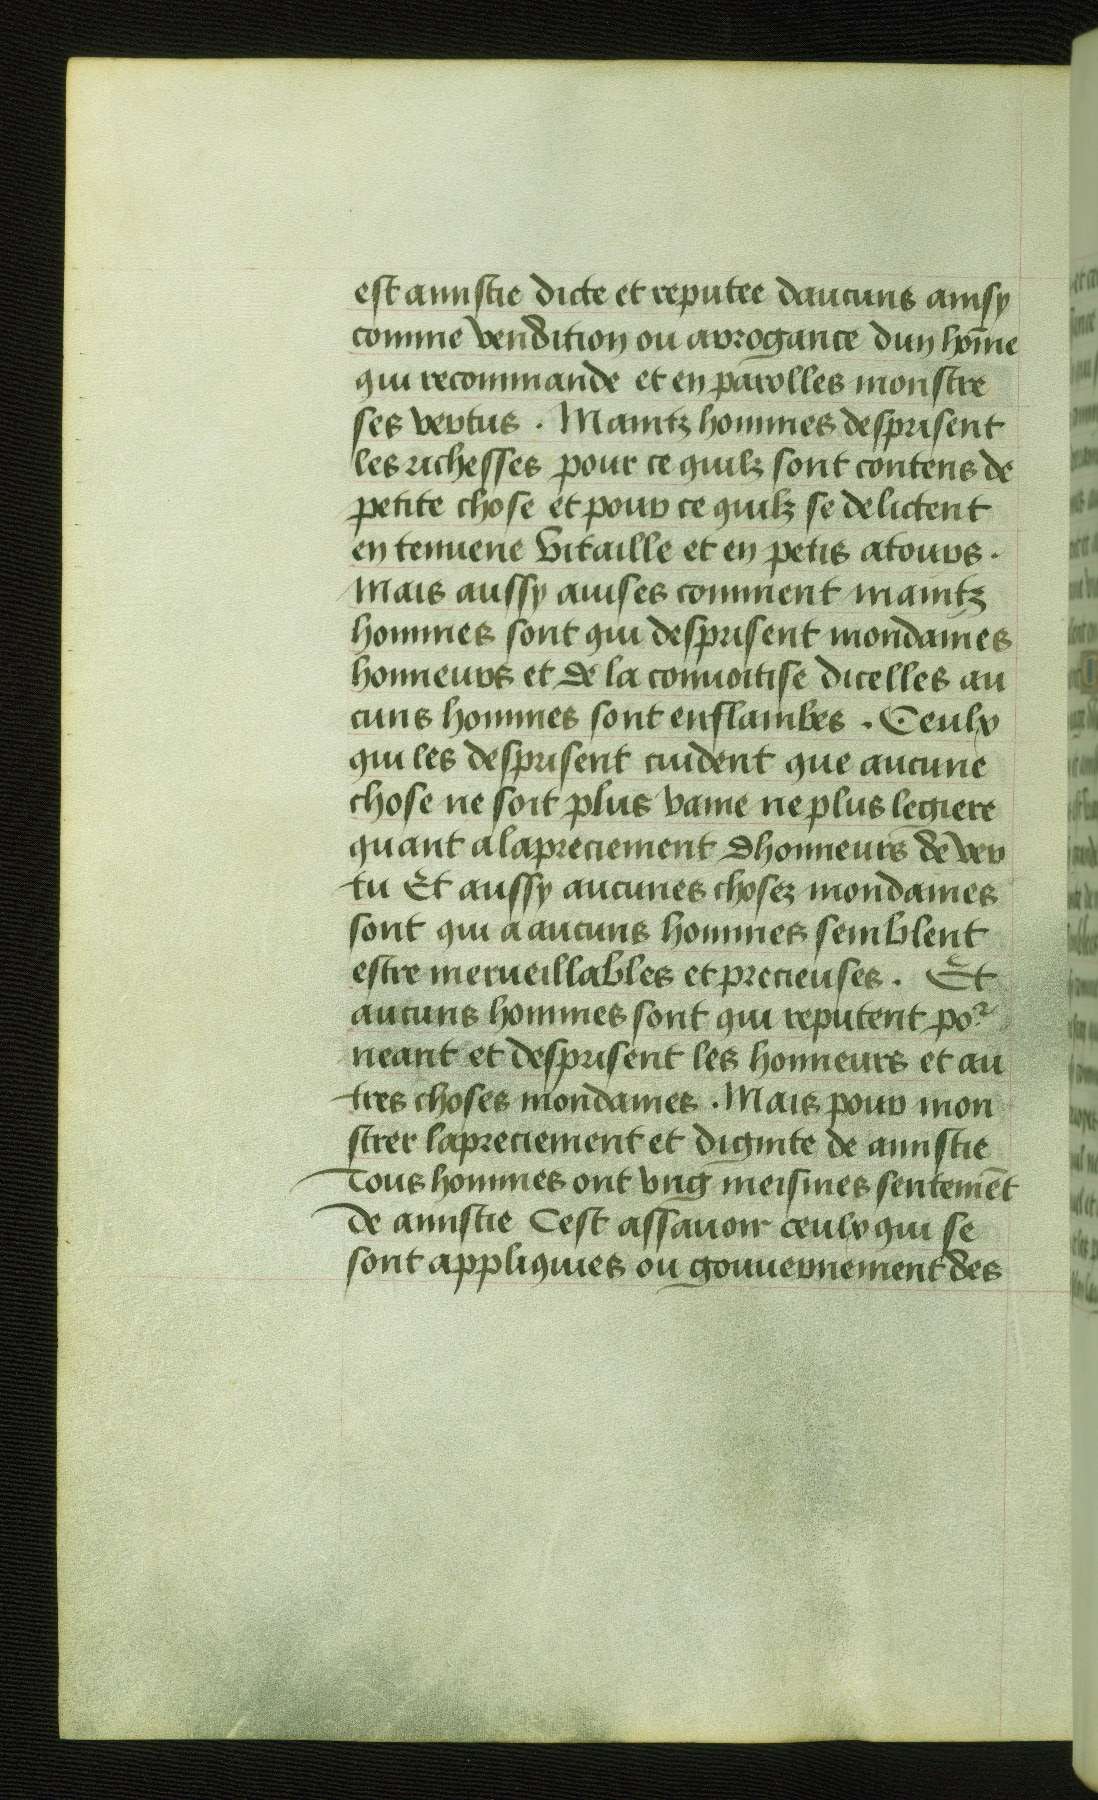 est amistie dicte et reputee daucuns ainsy
comme vendition ou arrogance dun hom̄e
qui recommande et en parolles monstre
ses vertus . Maintz hommes desprisent
les richesses pour ce quilz sont contens de
petite chose et pour ce quilz se delictent
en tenuene vitaille et en petis atours .
Mais aussy auises comment maintz
hommes sont qui desprisent mondaines
honneurs et de la conuoitise dicelles au
cuns hommes sont enflambes . Ceulx
qui les desprisent cuident que aucune
chose ne soit plus vaine ne plus legiere
quant a lapreciement dhonneurs de ver
tu Et aussy aucunes chosez mondaines
sont qui a aucuns hommes semblent
estre merueillables et precieuses . Et
aucuns hommes sont qui reputent poʳ
neant et desprisent les honneurs et au
tres choses mondaines . Mais pour mon
strer lapreciement et dignite de amistie
Tous hommes ont vng meismes sentemēt
de amistie Cest assauoir ceulx qui se
sont appliquies ou gouuernement des